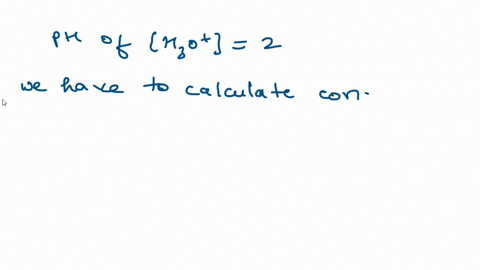 pH of [H₃O⁺] = 2
we have to calculate con.